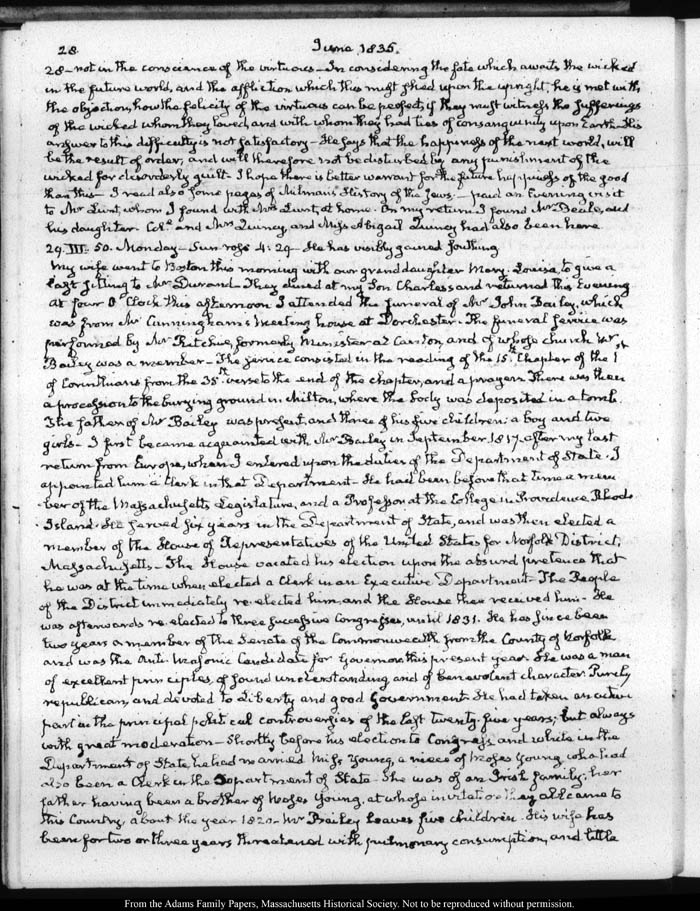 28
June 1835.
28 – not in the conscience of the virtuous – In considering the fate which awaits the wicked
in the future world, and the affliction which this must shed upon the upright, he is met with
the objection, how the felicity of the virtuous can be perfect, if they must witness the sufferings
of the wicked whom they loved, and with whom they had ties of consanguinity upon Earth – His
answer to this difficulty is not satisfactory – He says that the happiness of the next world, will
be the result of order, and will therefore not be disturbed by any punishment of the
wicked for disorderly guilt – I hope there is better warrant for the future happiness of the good
than this – I read also some pages of Milman's History of the Jews – paid an Evening visit
to Mr Lunt, whom I found with Mrs Lunt, at home. On my return I found Mr Beale, and
his daughter. Colo. and Mrs Quincy, and Miss Abigail Quincy had also been here
29. III. 50. Monday – Sun rose 4:29 – He has visibly gained southing
My wife went to Boston this morning with our granddaughter Mary-Louisa, to give a
last sitting to Mr Durand – They dined at my Son Charles's and returned this Evening
At four O'Clock this afternoon I attended the funeral of Mr John Bailey, which
was from Mr Cunningham's Meeting house at Dorchester. The funeral service was
performed by Mr Ritchie, formerly Minister at Canton, and of whose church Mr
Bailey was a member – The service consisted in the reading of the 15th Chapter of the 1st
of Corinthians from the 35th verse to the end of the chapter, and a prayer. There was then
a procession to the burying ground in Milton, where the body was deposited in a tomb.
The father of Mr Bailey was present and three of his five children; a boy and two
girls – I first became acquainted with Mr Bailey in September 1817, after my last
return from Europe, when I entered upon the duties of the Department of State. I
appointed him a Clerk in that Department – He had been before that time a mem
ber of the Massachusetts Legislature, and a Professor at the College in Providence Rhode
Island. He served six years in the Department of State, and was then elected a
member of the House of Representatives of the United States for Norfolk District,
Massachusetts – The House vacated his election upon the absurd pretence that
he was at the time when elected a Clerk in an Executive Department – The People
of the District immediately re-elected him, and the House then received him – He
was afterwards re-elected to three successive Congresses, until 1831. He has since been
two years a member of the Senate of the Commonwealth from the County of Norfolk
and was the Anti-Masonic Candidate for Governor this present year. He was a man
of excellent principles, of sound understanding and of benevolent character. Purely
republican, and devoted to Liberty and good Government. He had taken an active
part in the principal political controversies of the last twenty-five years; but always
with great moderation – Shortly before his election to Congress, and while in the
Department of State, he had married Miss Young, a niece of Moses Young, who had
also been a Clerk in the Department of State – She was of an Irish family; her
father having been a brother of Moses Young, at whose invitation they all came to
this Country, about the year 1820 – Mr Bailey leaves five children. His wife has
been for two or three years threatened with pulmonary consumption, and little
From the Adams Family Papers, Massachusetts Historical Society. Not to be reproduced without permission.